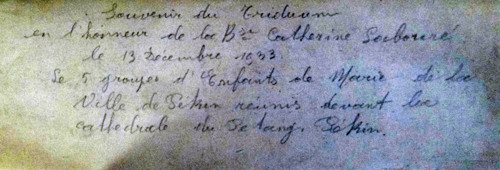 Souvenir du Triduum
en l'honneur de la Bse Catherine Labouré
le 13 Décembre 1933
Le 5 groupes d'Enfants de Marie de la
Ville de Pékin reunis devant la
cathedrale du Petang. Pékin.